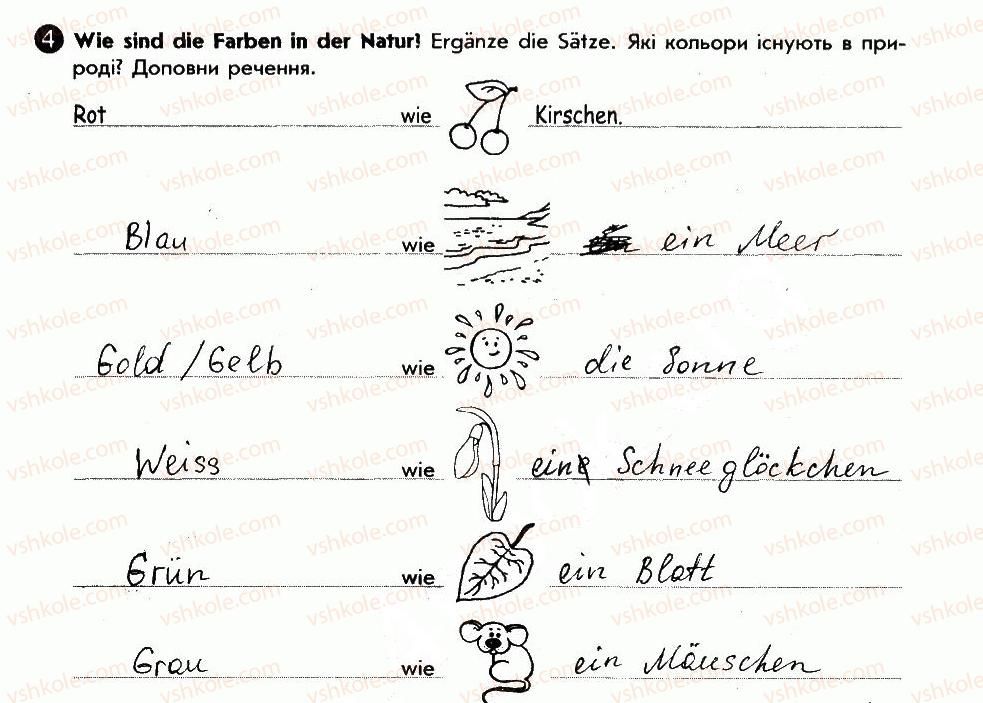 4 Wie sind die Farben in der Natur? Ergänze die Sätze. Які кольори існують в при-
роді? Доповни речення.
Rot wie Kirschen.
Blau wie ein Meer
Gold / Gelb wie die Sonne
Weiss wie ein Schneeglöckchen
Grün wie ein Blatt
Grau wie ein Mäuschen
vshkole.com